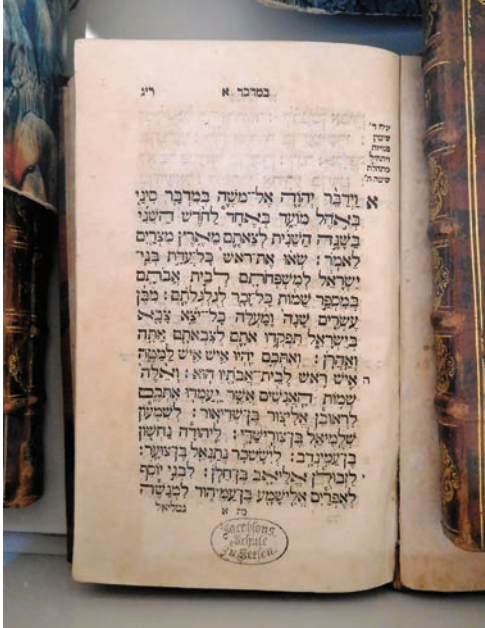 במדבר א ריג
ד'
שיטין
פנויות
ויתחיל
מתחלת
שיטה ה':
א וַיְדַבֵּר יְהוָה אֶל־מֹשֶׁה בְּמִדְבַּר סִינַי
בְּאֹהֶל מוֹעֵד בְּאֶחָד לַחֹדֶשׁ הַשֵּׁנִי
בַּשָּׁנָה הַשֵּׁנִית לְצֵאתָם מֵאֶרֶץ מִצְרַיִם
לֵאמֹר׃ שְׂאוּ אֶת־רֹאשׁ כָּל־עֲדַת בְּנֵי
יִשְׂרָאֵל לְמִשְׁפְּחֹתָם לְבֵית אֲבֹתָם
בְּמִסְפַּר שֵׁמוֹת כָּל־זָכָר לְגֻלְגְּלֹתָם׃ מִבֶּן
עֶשְׂרִים שָׁנָה וָמַעְלָה כָּל־יֹצֵא צָבָא
בְּיִשְׂרָאֵל תִּפְקְדוּ אֹתָם לְצִבְאֹתָם אַתָּה
וְאַהֲרֹן׃ וְאִתְּכֶם יִהְיוּ אִישׁ אִישׁ לַמַּטֶּה
ה אִישׁ רֹאשׁ לְבֵית־אֲבֹתָיו הוּא׃ וְאֵלֶּה
שְׁמוֹת הָאֲנָשִׁים אֲשֶׁר יַעַמְדוּ אִתְּכֶם
לִרְאוּבֵן אֱלִיצוּר בֶּן־שְׁדֵיאוּר׃ לְשִׁמְעוֹן
שְׁלֻמִיאֵל בֶּן־צוּרִישַׁדָּי׃ לִיהוּדָה נַחְשׁוֹן
בֶּן־עַמִּינָדָב׃ לְיִשָּׂשכָר נְתַנְאֵל בֶּן־צוּעָר׃
י לִזְבוּלֻן אֱלִיאָב בֶּן־חֵלֹן׃ לִבְנֵי יוֹסֵף
לְאֶפְרַיִם אֱלִישָׁמָע בֶּן־עַמִּיהוּד לִמְנַשֶּׁה
א גמליאל
Jacobsons
Schule
zu Seesen.